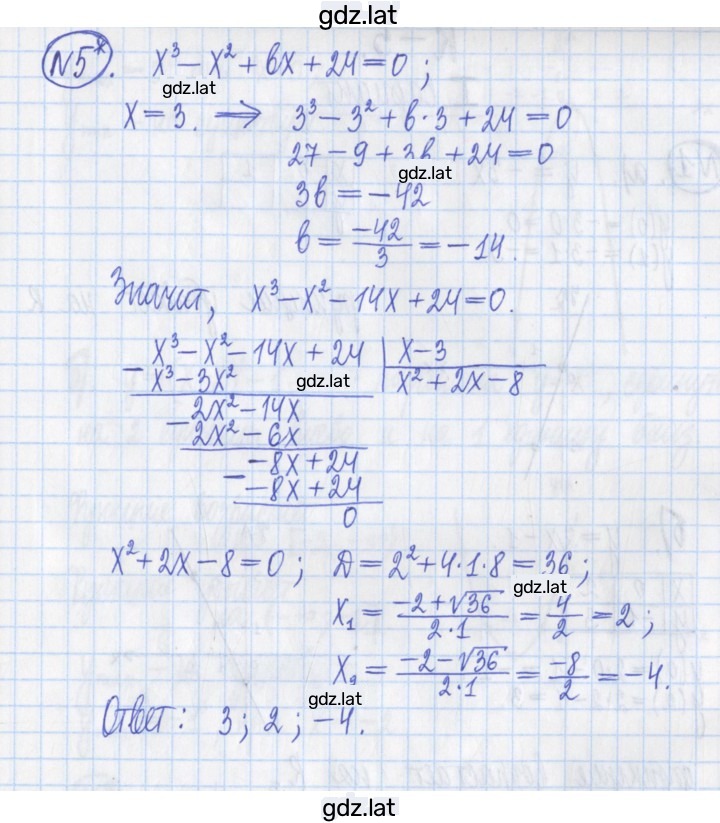 gdz.lat
N5*. x³ − x² + bx + 24 = 0 ;
gdz.lat
x = 3. ⟹ 3³ − 3² + b · 3 + 24 = 0
27 − 9 + 3b + 24 = 0
gdz.lat
3b = −42
b = −42/3 = −14.
Значит, x³ − x² − 14x + 24 = 0.
− x³ − x² − 14x + 24 | x − 3
x³ − 3x² gdz.lat | x² + 2x − 8
− 2x² − 14x
2x² − 6x
− −8x + 24
−8x + 24
0
x² + 2x − 8 = 0 ; Д = 2² + 4 · 1 · 8 = 36 ;
gdz.lat
x₁ = (−2 + √36)/(2 · 1) = 4/2 = 2 ;
x₂ = (−2 − √36)/(2 · 1) = −8/2 = −4.
gdz.lat
Ответ: 3 ; 2 ; −4.
gdz.lat